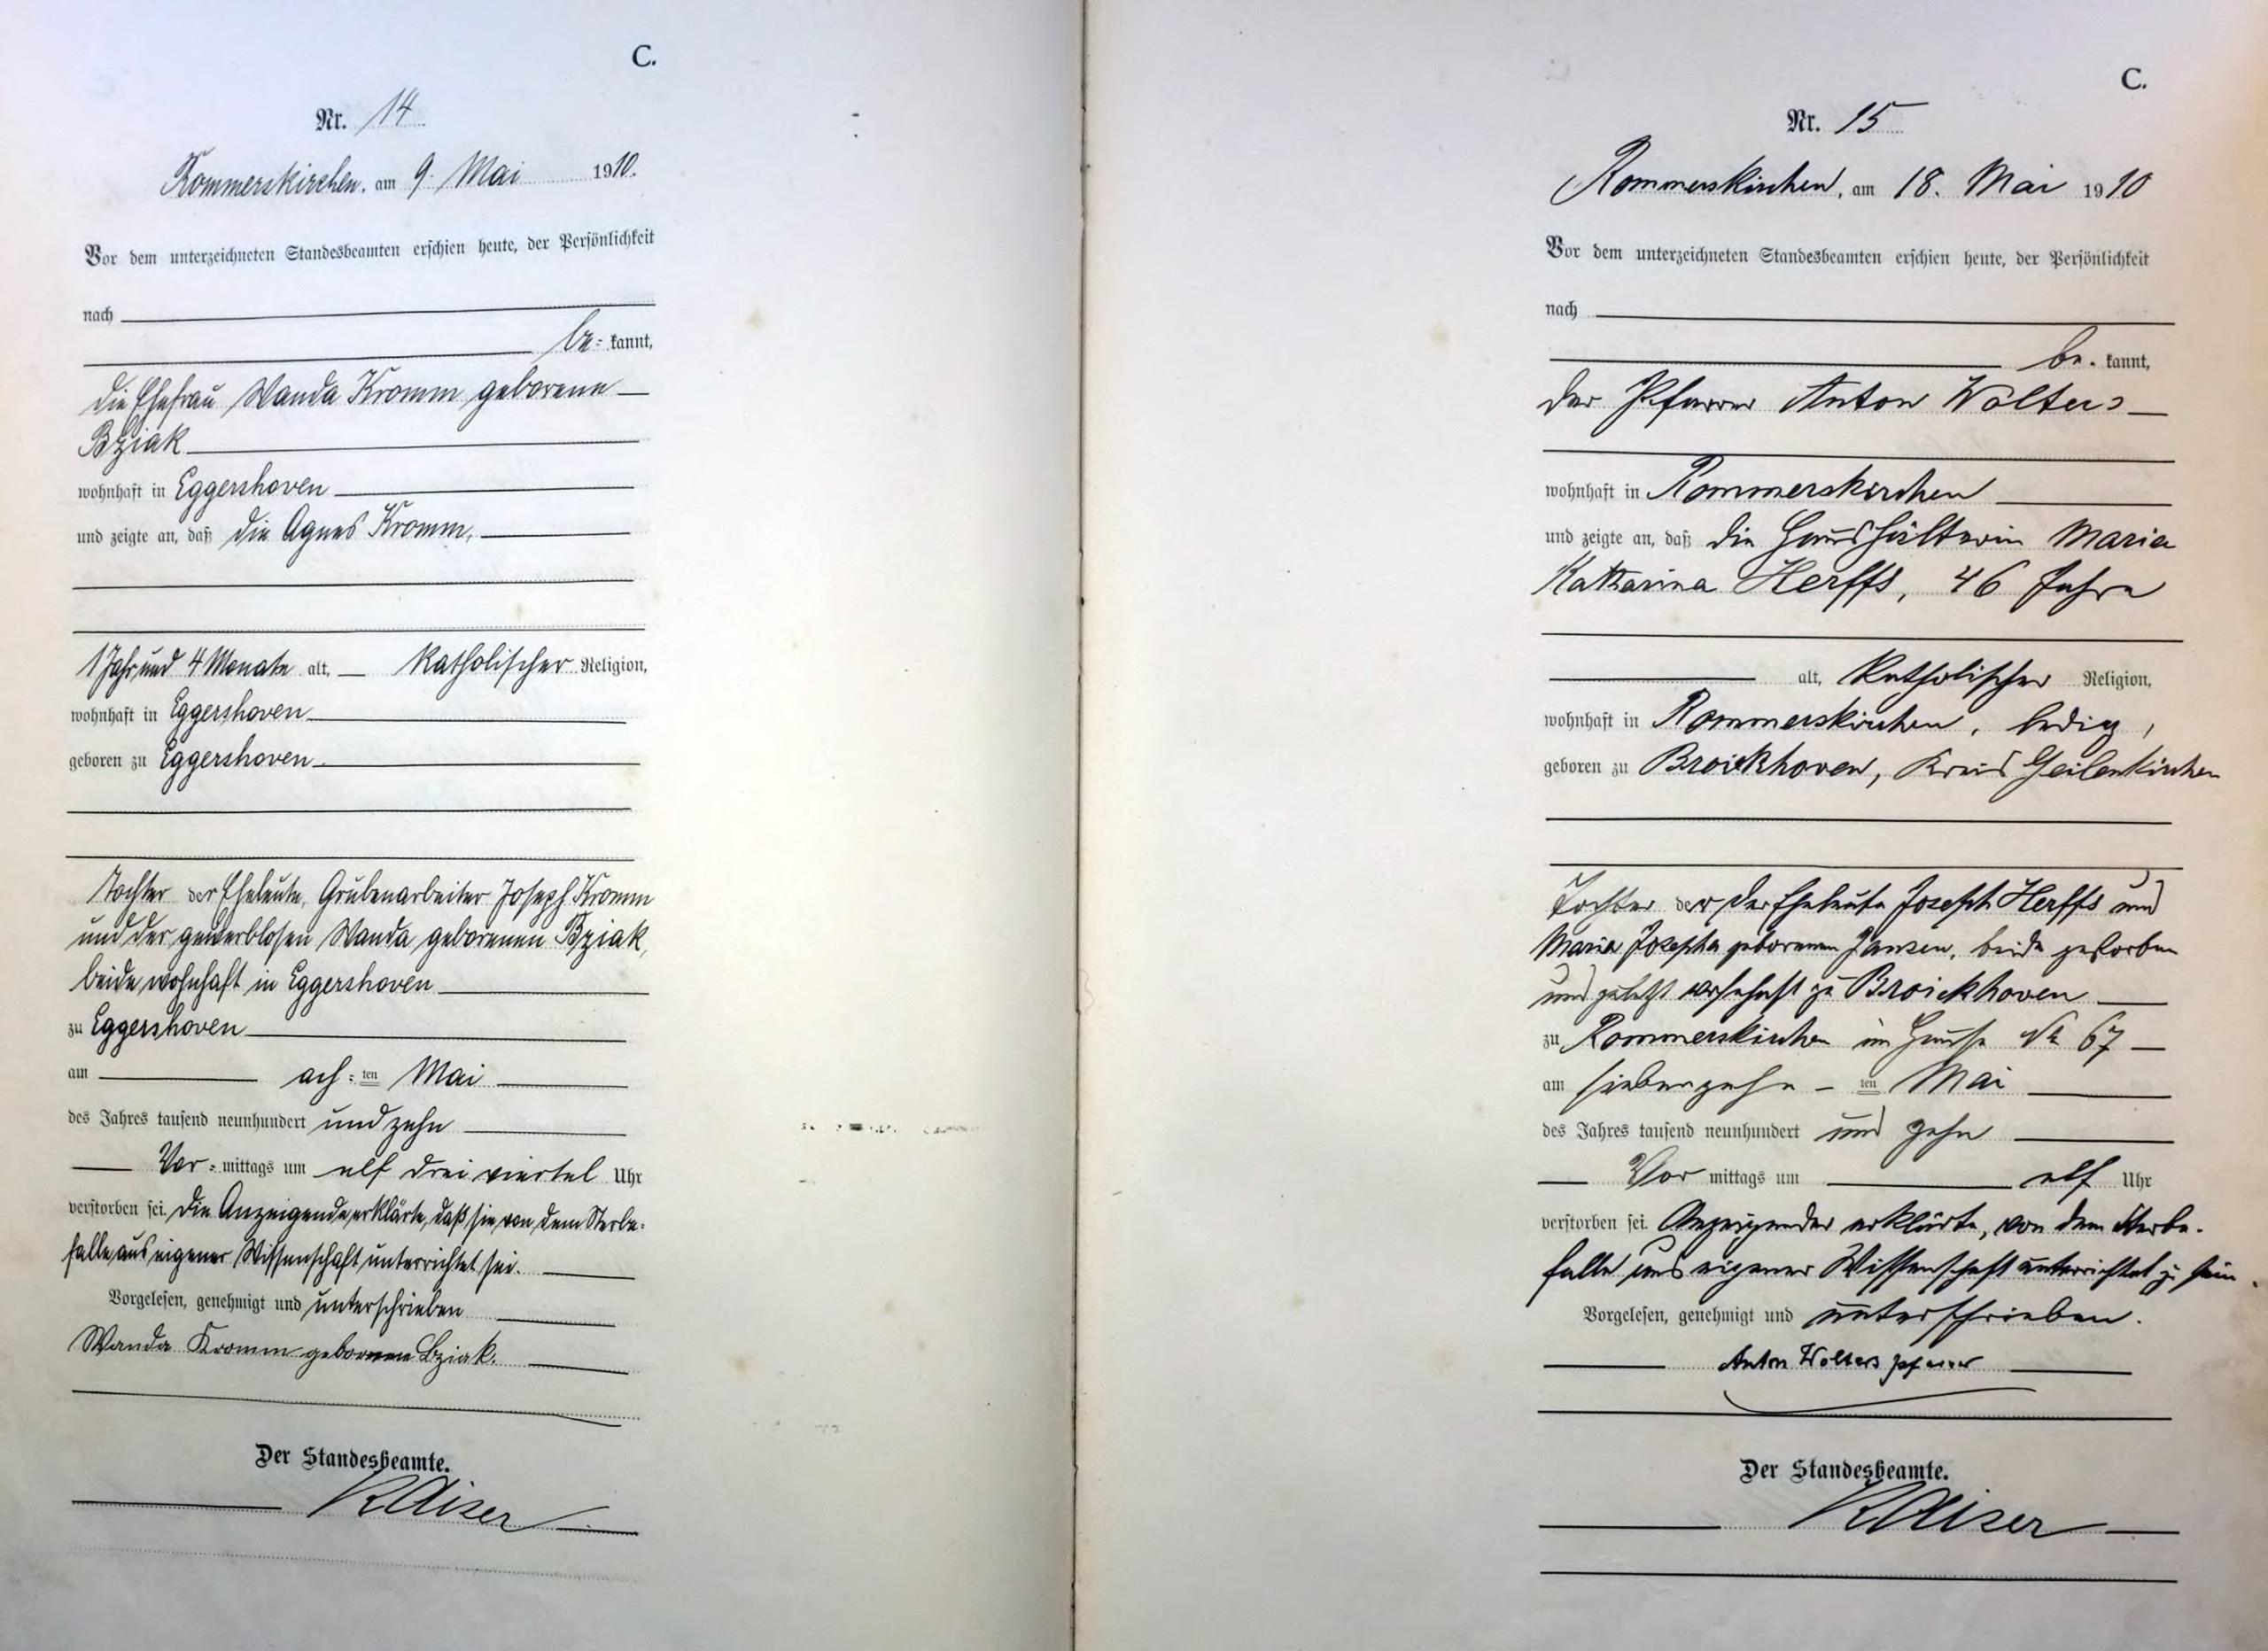 C.
Nr. 14
Rommerskirchen, am 9. Mai 1910.
Vor dem unterzeichneten Standesbeamten erschien heute, der Persönlichkeit
nach
be= kannt,
die Ehefrau Wanda Kromm geborene
Bziak
wohnhaft in Eggershoven
und zeigte an, daß die Agnes Kromm,
1 Jahr und 4 Monate alt, katholischer Religion,
wohnhaft in Eggershoven
geboren zu Eggershoven
Tochter der Eheleute, Grubenarbeiter Joseph Kromm
und der gewerblosen Wanda geborenen Bziak,
beide wohnhaft in Eggershoven
zu Eggershoven
am ach= ten Mai
des Jahres tausend neunhundert und zehn
Vor= mittags um elf drei viertel Uhr
verstorben sei. Die Anzeigende erklärte, daß sie von dem Sterbe=
falle aus eigener Wissenschaft unterrichtet sei.
Vorgelesen, genehmigt und unterschrieben
Wanda Kromm geborene Bziak.
Der Standesbeamte.
Kaiser
C.
Nr. 15
Rommerskirchen, am 18. Mai 1910
Vor dem unterzeichneten Standesbeamten erschien heute, der Persönlichkeit
nach
be- kannt,
der Pfarrer Anton Wolters
wohnhaft in Rommerskirchen
und zeigte an, daß die Haushälterin Maria
Katharina Herffs, 46 Jahre
alt, katholischer Religion,
wohnhaft in Rommerskirchen, ledig,
geboren zu Broickhoven, Kreis Geilenkirchen
Tochter der der Eheleute Joseph Herffs und
Maria Josepha geborenen Jansen, beide gestorben
und zuletzt wohnhaft zu Broickhoven
zu Rommerskirchen im Hause No 67
am siebenzehn - ten Mai
des Jahres tausend neunhundert und zehn
Vor mittags um elf Uhr
verstorben sei. Anzeigender erklärte, von dem Sterbe-
falle aus eigener Wissenschaft unterrichtet zu sein.
Vorgelesen, genehmigt und unterschrieben.
Anton Wolters Pfarrer
Der Standesbeamte.
Kaiser